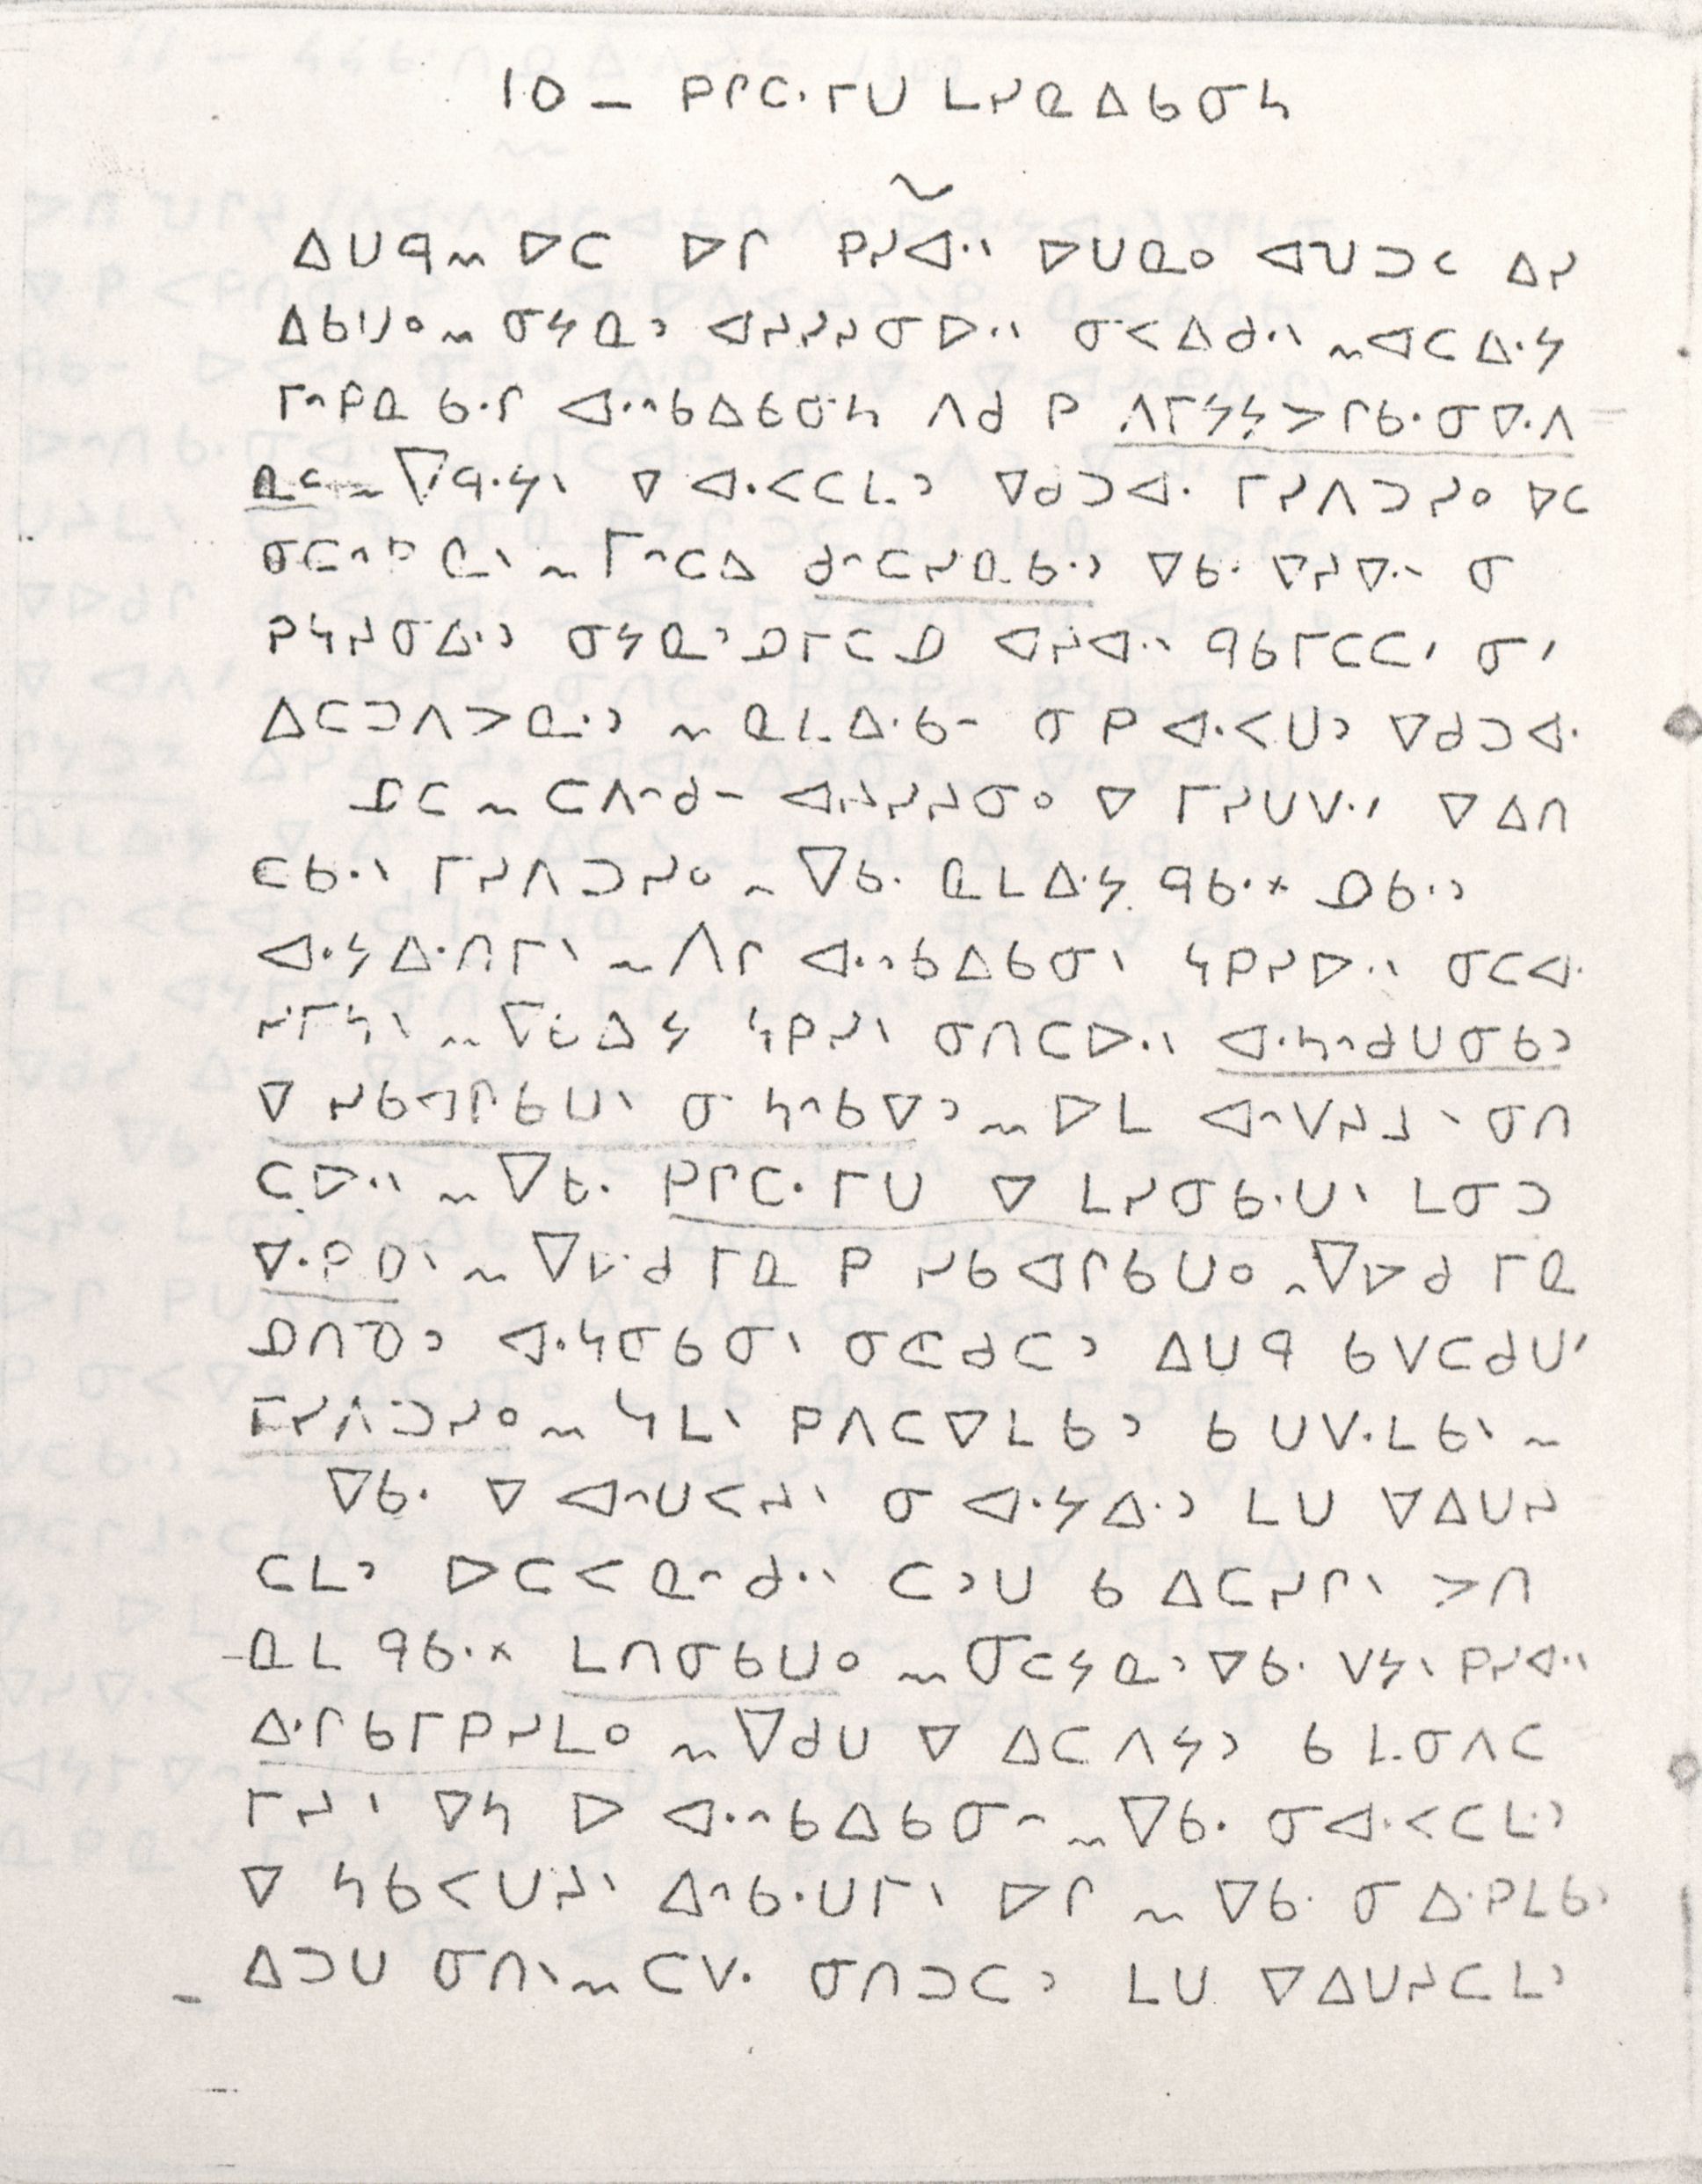 10 — ᑭᒋᑕᐧᒥᑌ ᒪᓯᓇᐃᑲᓂᓴ
ᐃᑌᑫ ~ ᐁᑕ ᐅᒋ ᑭᓯᐊᐧᐠ ᐅᑌᓇᐤ ᐊᑌᑐᑦ ᐃᓯ
ᐃᑲᓯᐤ ~ ᓂᔭᓇᐣ ᐊᓯᓯᓂᐅᐧᐠ ᓂᐸᐃᑯᐧᐠ ~ ᐊᑕᐃᐧᔭ
ᒥᐢᑭᓇ ᑲᐧᒋ ᐊᐧᐢᑲᐃᑲᓂᓴ ᐱᑯ ᑭ ᐱᒥᔭᔭᐳᒋᑲᐧᓂᐁᐧᐱ
ᓇᑦ ~ ᐁᑫᐧᔭᐠ ᐁ ᐊᐧᐸᑕᒪᐣ ᐁᑯᑐᐊᐧ ᒥᓯᐱᑐᓯᐤ ᐁᑕ
ᒥᐢᑕᐃ ᑯᐢᑕᓯᓇᑲᐧᐣ ᐁᑲᐧ ᐁᓯᐁᐧᐠ ᓂ
ᑭᓴᓯᓂᐃᐧᐣ ᓂᔭᓇᐣ ᓄᒥᑕᓄ ᐊᓯᐊᐧᐠ ᑫᑲᒥᑕᑕᐟ ᓂᐟ
ᐃᑕᑐᐱᐳᓇᐧᐣ ~ ᓇᒪᐃᐧᑲᐨ ᓂ ᑭ ᐊᐧᐸᑌᐣ ᐁᑯᑐᐊᐧ
ᓄᑕ ~ ᑕᐱᐢᑯᐨ ᐊᓯᓯᓂᐤ ᐁ ᒥᓯᑌᐯᐧᐟ ᐁᐃᑎ
ᑕᑲᐧᐠ ᒥᓯᐱᑐᓯᐤ ~ ᐁᑲᐧ ᓇᒪᐃᐧᔭ ᑫᑲᐧᕽ ᓄᑲᐧᐣ
ᐊᐧᔭᐃᐧᑎᒥᐠ ~ ᐱᒋ ᐊᐧᐢᑲᐃᑲᓂᐠ ᓴᑭᓯᐅᐧᐠ ᓂᑕᐊᐧ
ᓯᒥᓴᐠ ~ ᐁᑲᐃᔭ ᓴᑭᓯᐠ ᓂᑎᑕᐅᐧᐠ ᐊᐧᓴᐢᑯᑌᓂᑲᐣ
ᐁ ᓯᑲᐊᒋᑲᑌᐠ ᓂ ᓴᐢᑲᐁᐣ ~ ᐅᒪ ᐊᐢᐯᓯᒧᐠ ᓂᑎ
ᑕᐅᐧᐠ ~ ᐁᑲᐧ ᑭᒋᑕᐧᒥᑌ ᐁ ᒪᓯᓂᑲᐧᑌᐠ ᒪᓂᑐ
ᐁᐧᑭᓄᐠ ~ ᐁᐅᑯ ᒥᓇ ᑭ ᓯᑲᐊᒋᑲᑌᐤ ~ ᐁᐅᑯ ᒥᓇ
ᓄᑎᓀᐣ ᐊᐧᓴᓂᑲᓂᐠ ᓂᑕᑯᑕᐣ ᐃᑌᑫ ᑲᐯᑕᑯᑌᐟ
ᒥᓯᐱᑐᓯᐤ ~ ᓴᒪᐠ ᑭᐱᑕᐁᒪᑲᐣ ᑲ ᑌᐯᐧᒪᑲᐠ ~
ᐁᑲᐧ ᐁ ᐊᐢᑌᐸᓯᐠ ᓂ ᐊᐧᔭᐃᐧᐣ ᒪᑌ ᐁᐃᑌᓯ
ᑕᒪᐣ ᐅᑕᐸᓇᐢᑯᐧᐠ ᑕᐣᑌ ᑲ ᐃᑕᓯᒋᐠ ᐳᑎ
ᓇᒪ ᑫᑲᐧᕽ ᒪᑎᓂᑲᑌᐤ ~ ᓂᑕᔭᓇᐣ ᐁᑲᐧ ᐯᔭᐠ ᑭᓯᐊᐧᐠ
ᐃᐧᒋᑲᒥᑭᓯᒪᐤ ~ ᐁᑯᑌ ᐁ ᐃᑕᐱᔭᐣ ᑲ ᒪᓂᐱᑕ
ᒥᓯᐠ ᐁᓴ ᐅ ᐊᐧᐢᑲᐃᑲᓂᐢ ~ ᐁᑲᐧ ᓂᐊᐧᐸᑕᒪᐣ
ᐁ ᓴᑲᐸᑌᓯᐠ ᐃᐢᑲᐧᑌᒥᐠ ᐅᒋ ~ ᐁᑲᐧ ᓂ ᐃᐧᑭᒪᑲᐣ
ᐃᑐᑌ ᓂᑎᐠ ~ ᑕᐯᐧ ᓂᑎᑐᑕᐣ ᒪᑌ ᐁᐃᑌᓯᑕᒪᐣ